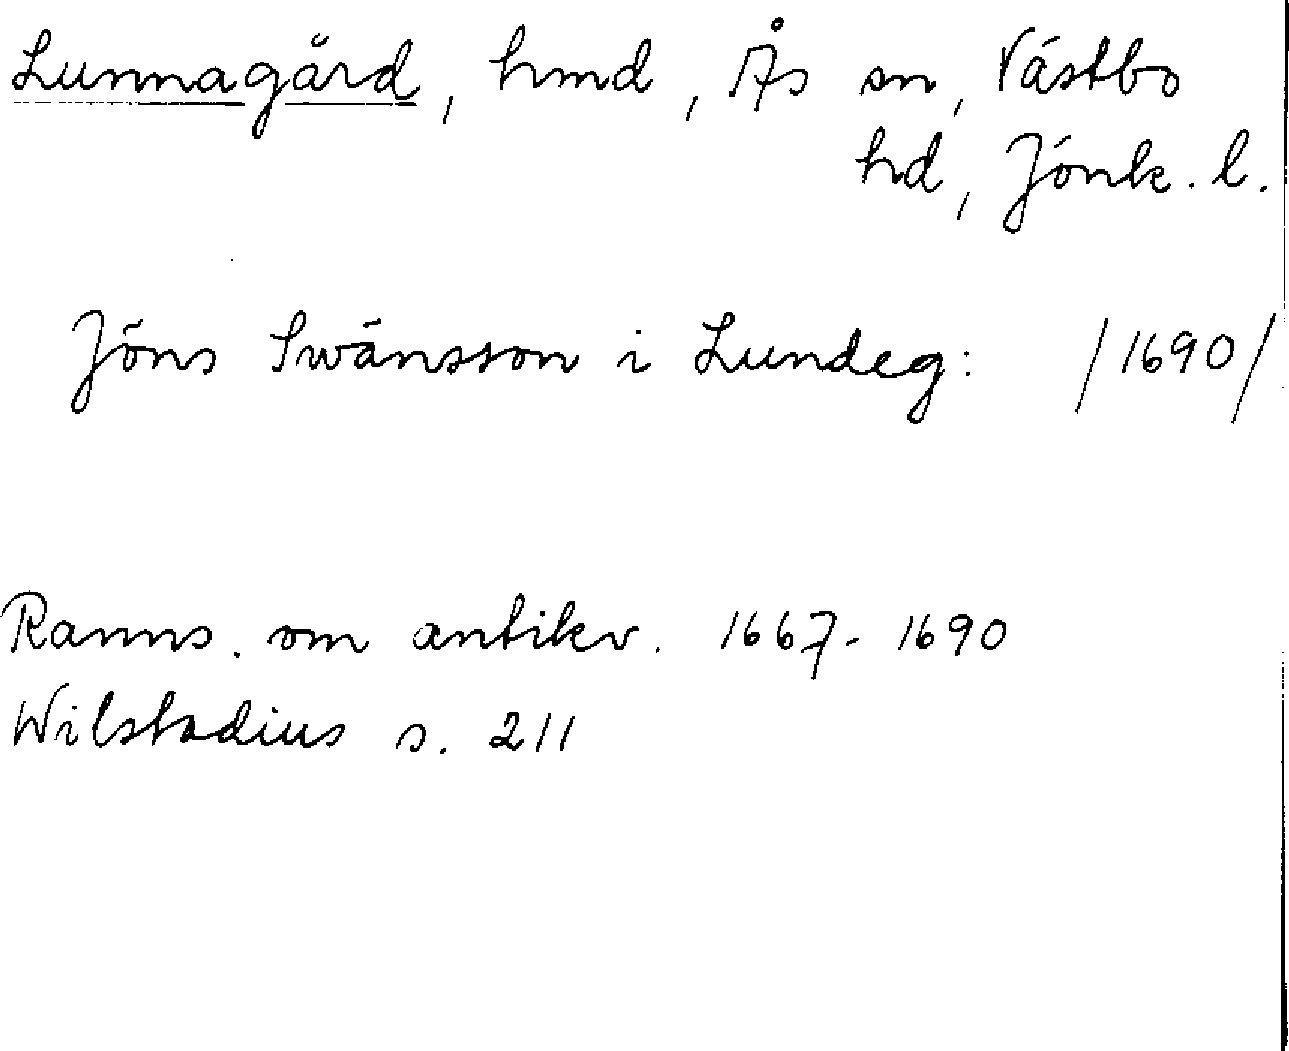 Lunnagård, hmd, Ås sn, Västbo
hd, Jönk. l.
Jöns Swänsson i Lundeg: /1690/
Ranns. om antikv. 1667-1690
Wilstadius s. 211